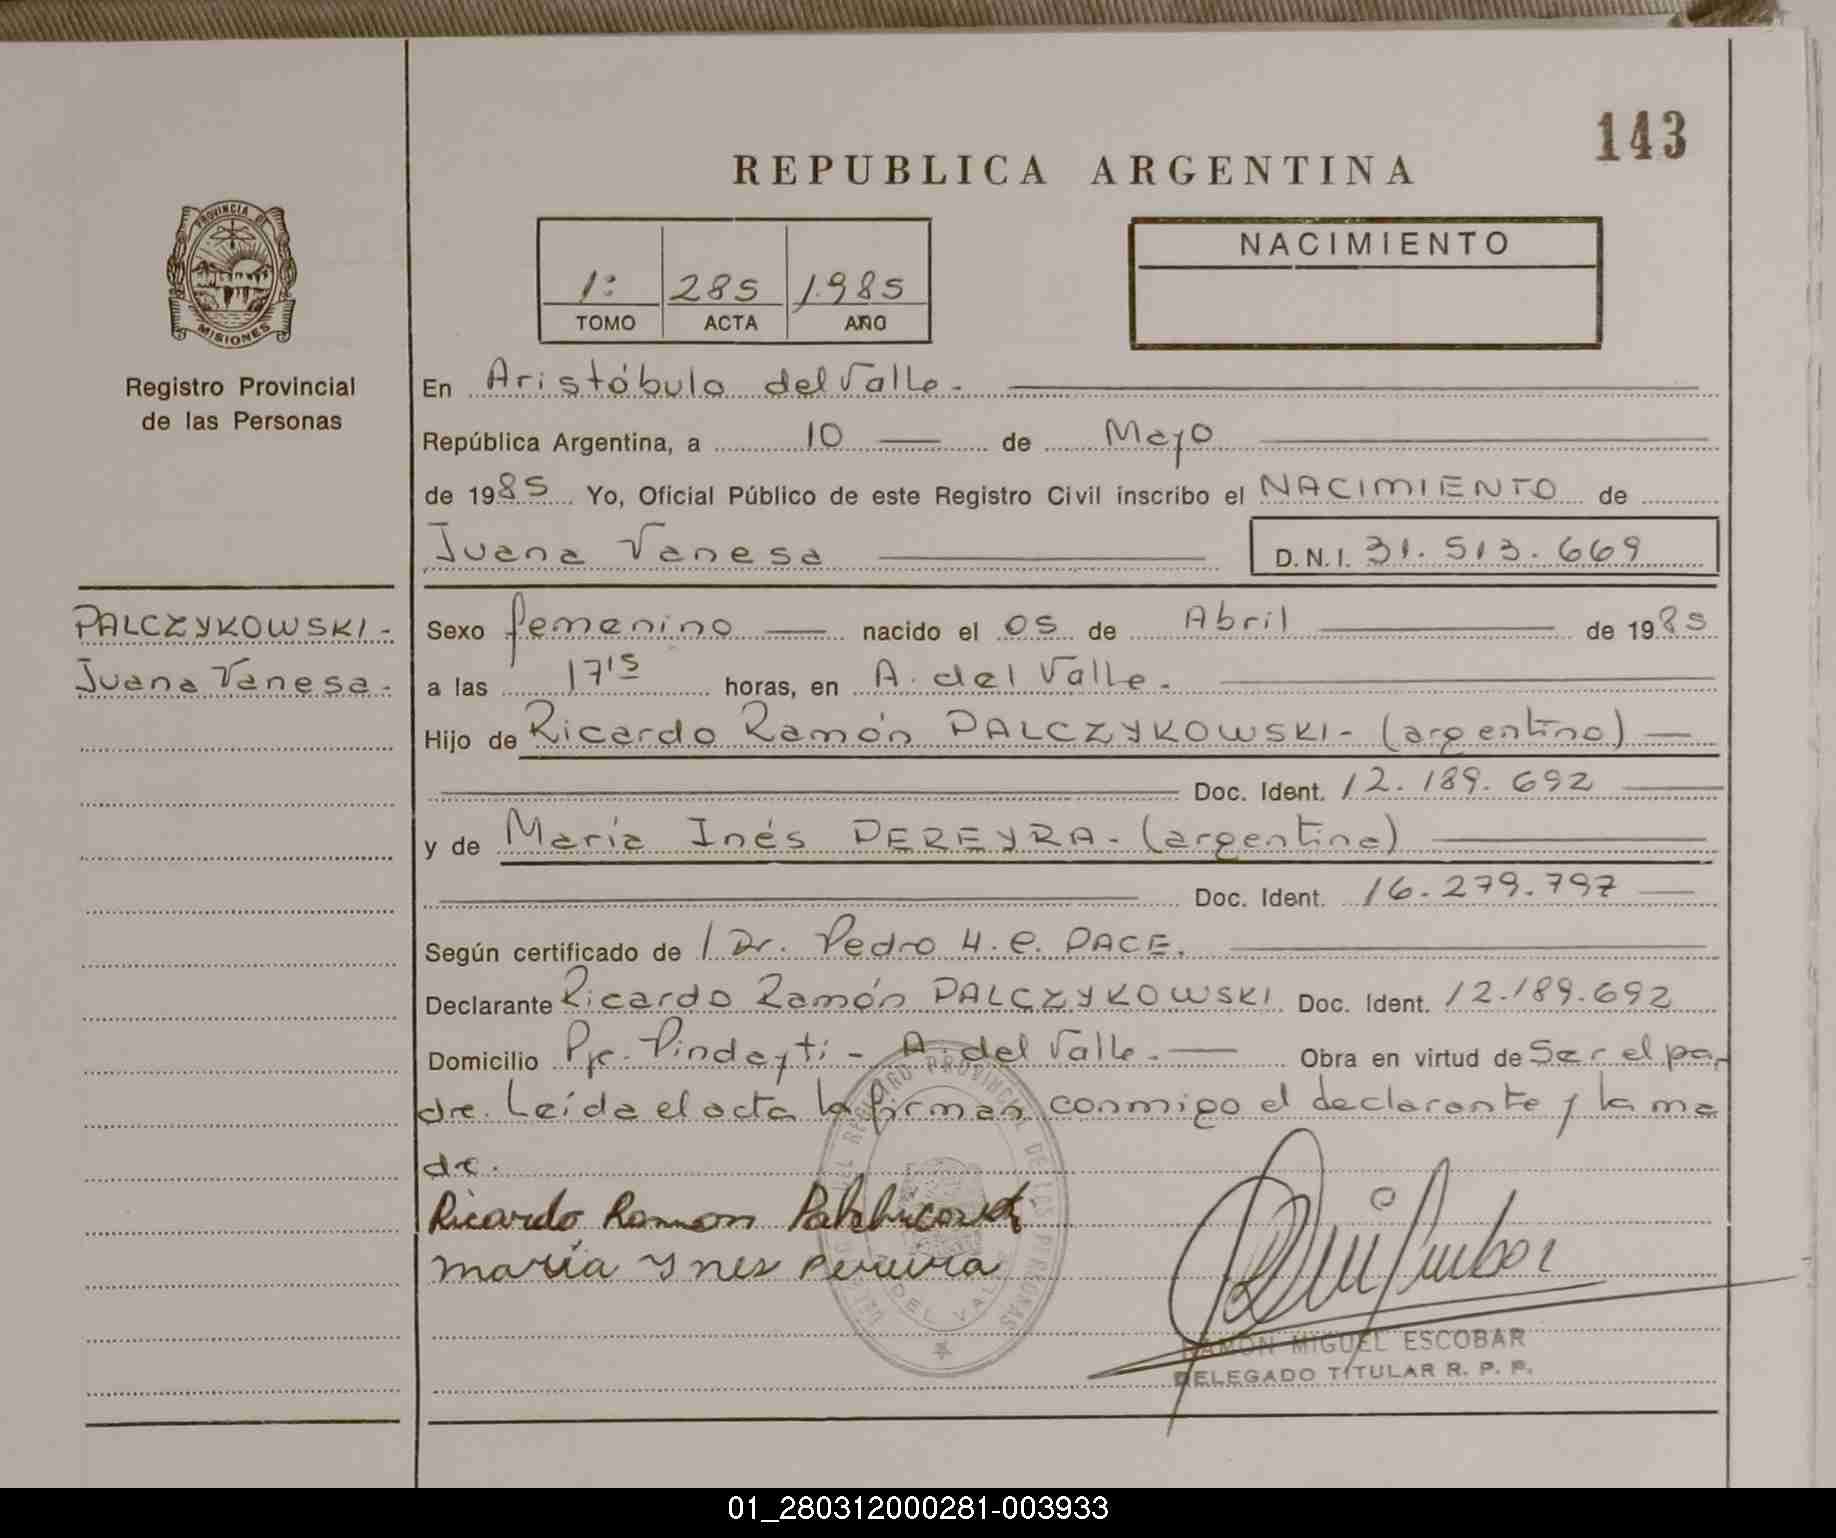 143
REPUBLICA ARGENTINA
PROVINCIA DE
MISIONES
Registro Provincial
de las Personas
1: 285 1.985
TOMO ACTA AÑO
NACIMIENTO
En Aristóbulo del Valle.
República Argentina, a 10 de Mayo
de 1985 Yo, Oficial Público de este Registro Civil inscribo el NACIMIENTO de
Juana Vanesa D.N.I. 31.513.669
PALCZYKOWSKI-
Juana Vanesa.
Sexo femenino nacido el 05 de Abril de 1985
a las 17'15 horas, en A. del Valle.
Hijo de Ricardo Ramón PALCZYKOWSKI- (argentino)
Doc. Ident. 12.189.692
y de María Inés PEREYRA- (argentina)
Doc. Ident. 16.279.797
Según certificado de 1 Dr. Pedro H. C. PACE.
Declarante Ricardo Ramón PALCZYKOWSKI Doc. Ident. 12.189.692
Domicilio Pje. Pindayti - A. del Valle. Obra en virtud de Ser el pa-
dre. Leída el acta la firman conmigo el declarante y la ma
dre.
Ricardo Ramon
maria Ynes Pereira
RAMON MIGUEL ESCOBAR
DELEGADO TITULAR R. P. P.
01_280312000281-003933